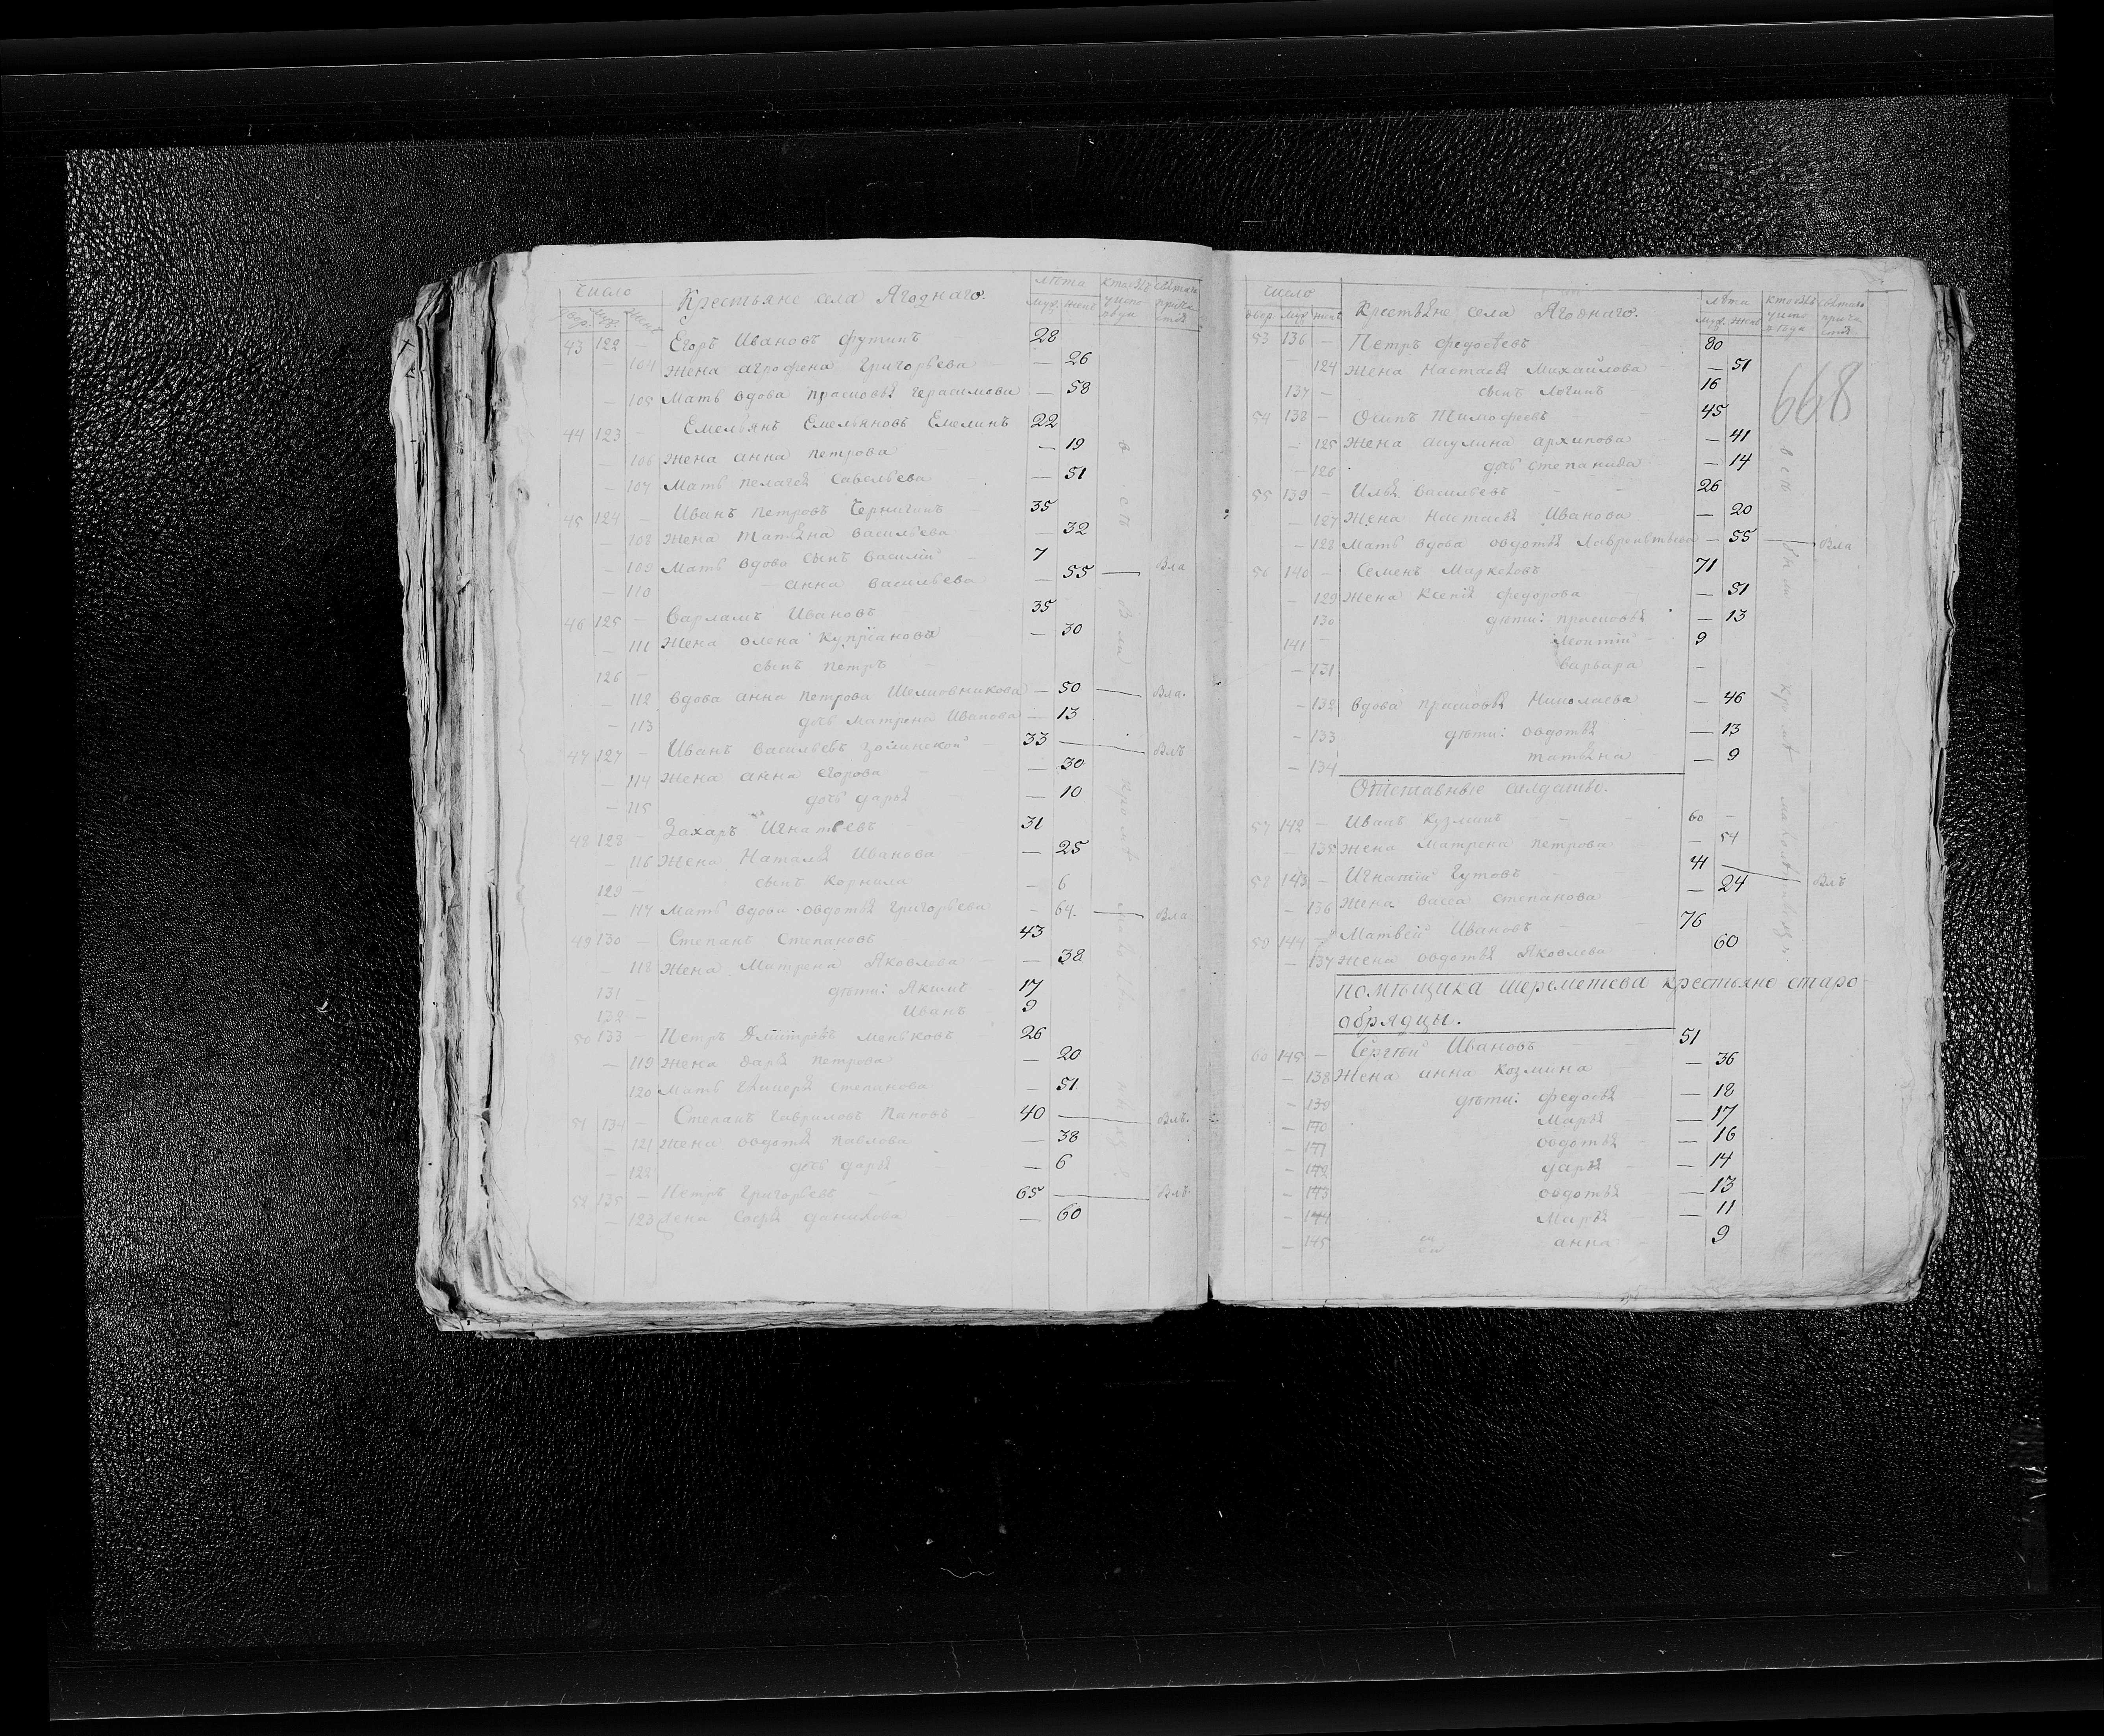 число Крестьяне села Ягоднаго. лѣта
двор. муж. жен. муж. жен.
43 122 — Егоръ Ивановъ 28
— 104 жена агрофена Григорьева — 26
— 105 мать вдова прасковья Герасимова — 58
44 123 — Емельянъ Емельяновъ Емелинъ 22
— 106 жена анна петрова — 19
— 107 мать пелагея Савельева — 51
45 124 — Иванъ петровъ 35
— 108 жена татьяна васильева — 32
— 109 мать вдова сынъ василій 7
— 110 анна васильева — 55 — Вла
46 125 — Варламъ Ивановъ 35
— 111 жена олена Купріанова — 30
126 — сынъ петръ
— 112 вдова анна петрова — 50 — Вла.
— 113 дочь матрена Иванова — 13
47 127 — Иванъ васильевъ 33 — Влъ
— 114 жена анна егорова — 30
— 115 дочь дарья — 10
48 128 — Захаръ Игнатьевъ 31
— 116 жена Наталья Иванова — 25
129 — сынъ корнила — 6
— 117 мать вдова овдотья григорьева — 64. — Вла
49 130 — Степанъ Степановъ 43
— 118 жена Матрена Яковлева — 38
131 — дѣти: Якимъ 17
132 — Иванъ 9
50 133 — Петръ Дмитровъ меньковъ 26
— 119 жена дарья петрова — 20
120 мать степанова — 51
51 134 — Степанъ гавриловъ Пановъ 40 — Влъ.
— 121 жена овдотья павлова — 38
— 122 дочь дарья — 6
52 135 — Петръ григорьевъ 65 — Влъ.
— 123 жена Софья — 60
число Крестьяне села Ягоднаго. лѣта
двор. муж. жен. муж. жен.
668
53 136 — Петръ федосѣевъ 80
— 124 жена настасья михайлова — 51
137 — сынъ логинъ 16
54 138 — Осипъ Тимофеевъ 45
— 125 жена акулина архипова — 41
— 126 дочь степанида — 14
55 139 — Илья васильевъ 26
— 127 жена настасья Иванова — 20
— 128 мать вдова овдотья лаврентьева — 55 — Вла
56 140 — Семенъ 71
— 129 жена ксенія федорова — 51
130 дѣти: прасковья — 13
141 — леонтій 9
— 131 варвара —
— 132 вдова прасковья Николаева — 46
— 133 дѣти: овдотья — 13
— 134 татьяна — 9
Отставные салдаты.
57 142 — Иванъ кузминъ 60 —
— 135 жена матрена петрова — 54
58 143 — Игнатій 41 — Влъ
— 136 жена васса степанова — 24
59 144 — Матвей Ивановъ 76
— 137 жена овдотья Яковлева 60
помѣщика шереметева крестьяне старо-
обрядцы.
60 145 — Сергѣй Ивановъ 51
— 138 жена анна козмина — 36
— 139 дѣти: федосья — 18
— 140 марья — 17
— 141 овдотья — 16
— 142 дарья — 14
— 143 овдотья — 13
— 144 марья — 11
— 145 анна 9